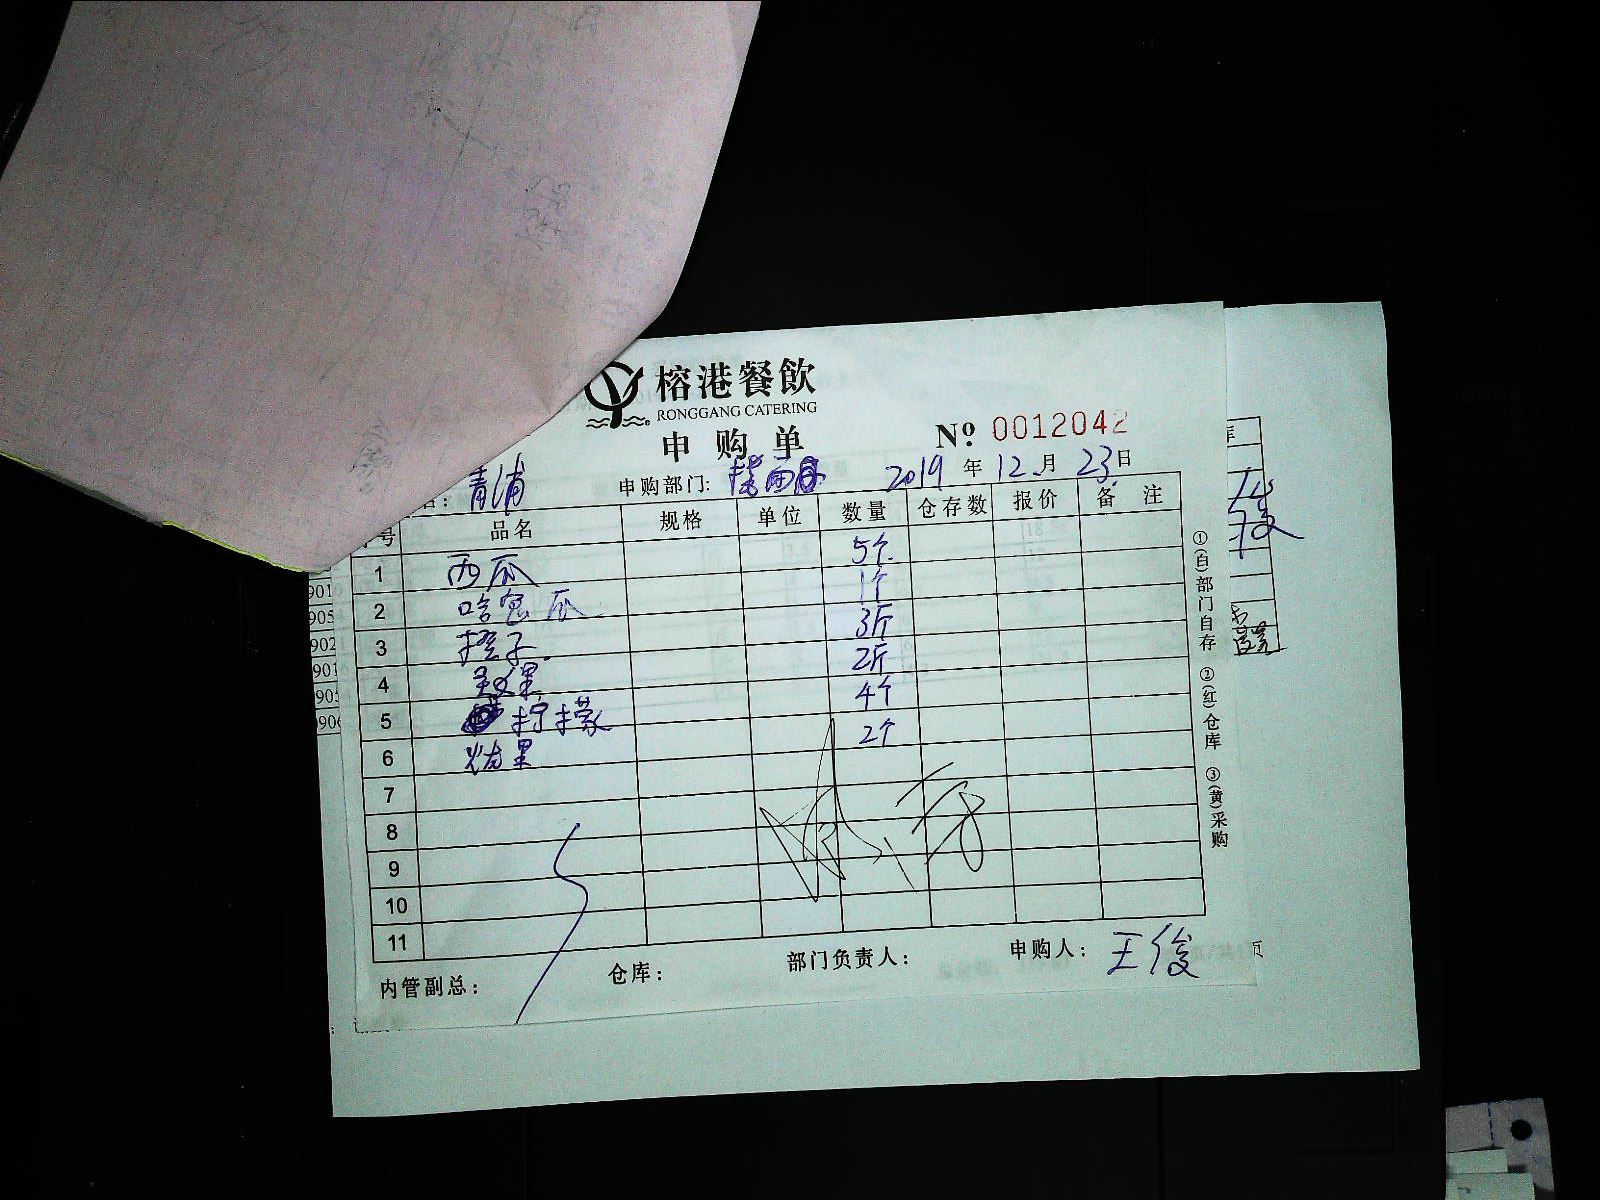 榕港餐飲
RONGGANG CATERING
申购单
№ 0012042
名: 青浦 申购部门: 2019 年 12 月 23 日
号 品名 规格 单位 数量 仓存数 报价 备注
1 西瓜 5个
2 哈密瓜 1个
3 橙子 3斤
4 2斤
5 柠檬 4个
6 2个
7
8
9
10
11
内管副总: 仓库: 部门负责人: 申购人: 王俊
①(白)部门自存 ②(红)仓库 ③(黄)采购
901
9054
902
901
905
906
页